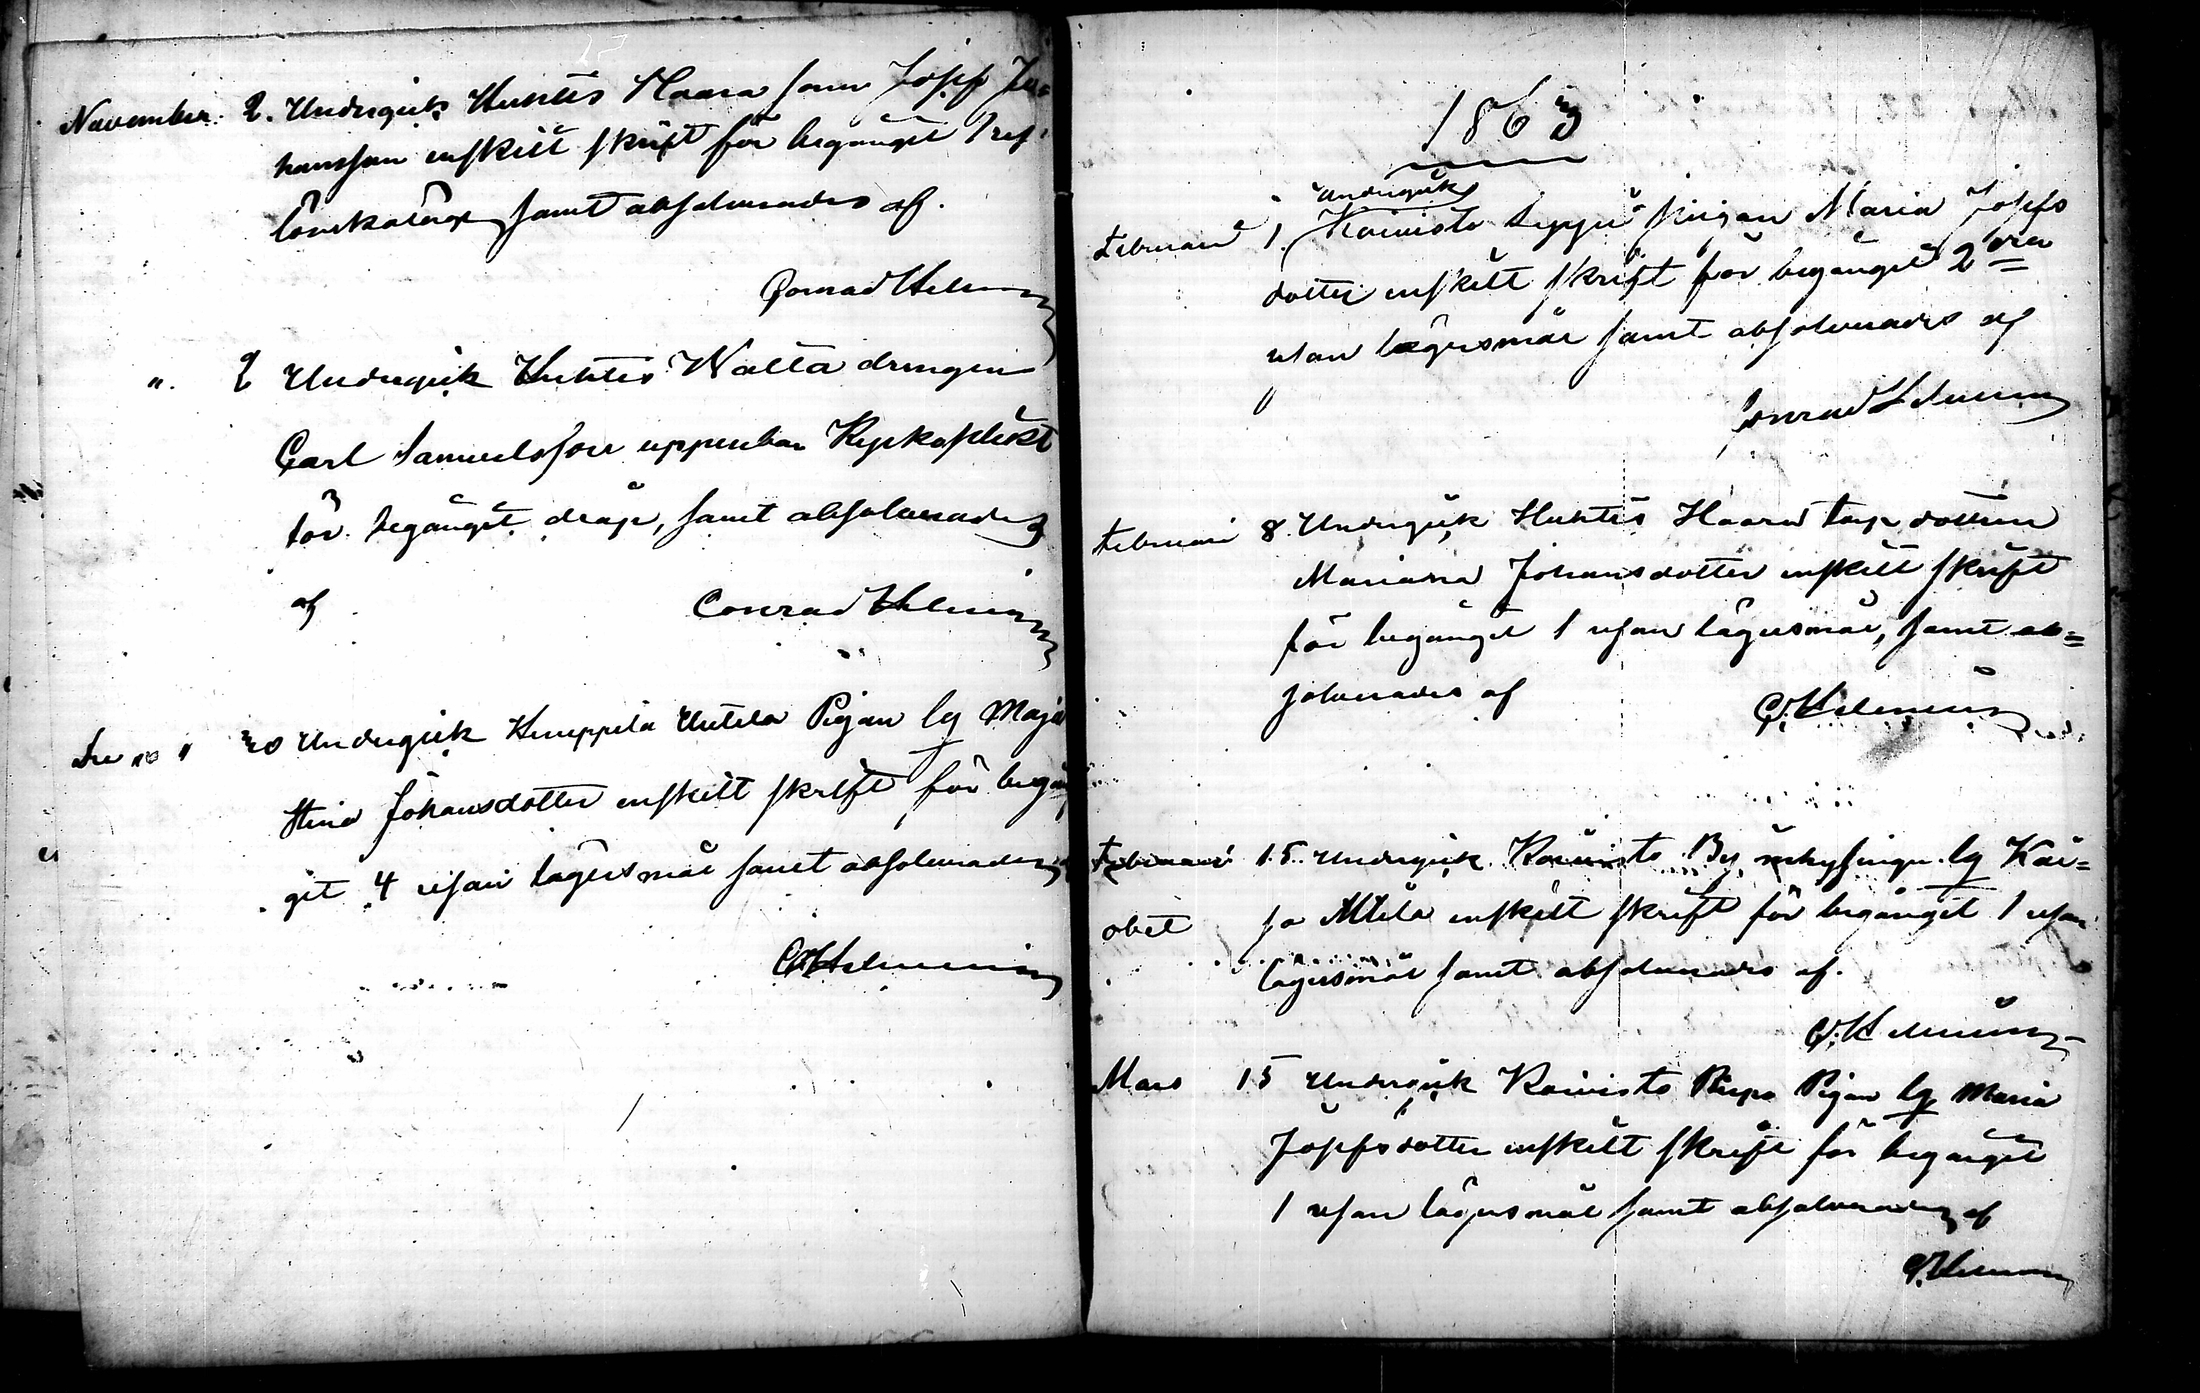 November. 2. Undergick Huhtis Haara sonen Josef Jo=
hansson enskilt skrift för begånget 1 res
lönskaläge samt absolverades af.
Conrad Helenius
". 2 Undergick Huhtis Walta drengen
Carl Samuelsson uppenbar Kyrkoplikt
för begånget dråp, samt absolverades
af Conrad Helenius
" 20 Undergick Kauppila Uutela Pigan lg Maja
Stina Johansdotter enskilt skrift för begån
git 4 resan lägersmål samt absolverades
C Helenius
1863
undergick
Februari 1. Koivisto Seppä pigan Maria Josefs
dotter enskilt skrift för begånget 2dra
resan lägersmål samt absolverades af
Conrad Helenius
Februari 8. Undergick Huhtis Haara torp dottren
Mariana Johansdotter enskilt skrift
för begånget 1 resan lägersmål, samt ab=
solverades af C. Helenius
Februari 15. Undergick Koivisto By inhysinge lg Kai=
obet sa Mtela enskilt skrift för begånget 1 resan
lägersmål samt absolverades af.
C. Helenius
Mars 15 Undergick Koivisto Piepo Pigan lg Maria
Josefsdotter enskilt skrift för begånget
1 resan lägersmål samt absolverades af
C. Helenius